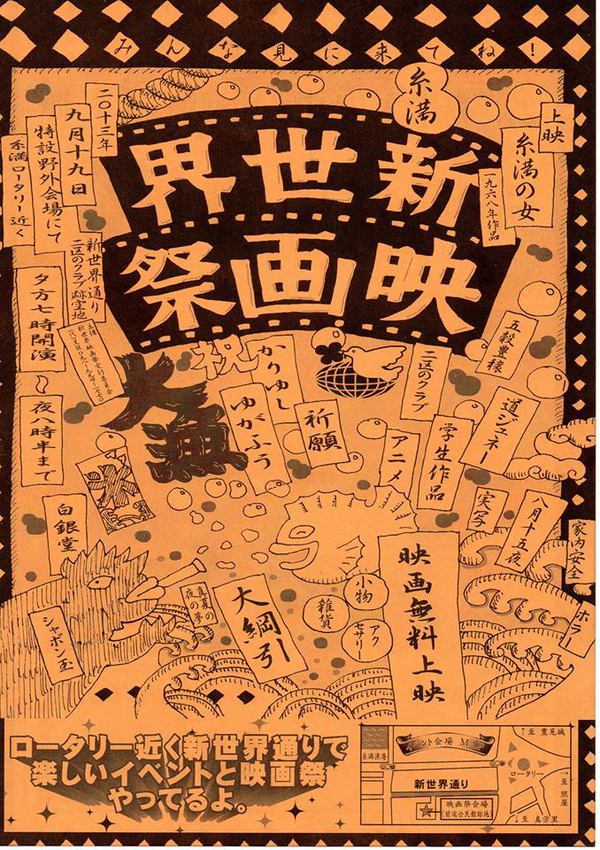 みんな見に来てね！
糸満
新世界
映画祭
上映
糸満の女
一九六八年作品
二〇十三年
九月十九日
特設野外会場にて
糸満ロータリー近く
新世界通り
二区のクラブ跡空地
夕方七時開演〜夜八時半まで
祝
大漁
かりゆし
ゆがふう
祈願
二区のクラブ
五穀豊穣
道ジュネー
学生作品
アニメ
実写
八月十五夜
家内安全
ホラー
白銀堂
シャボン玉
真夏の
夜の夢
大綱引
雑貨
小物
アク
セサリー
映画無料上映
ロータリー近く新世界通りで
楽しいイベントと映画祭
やってるよ。
イベント会場 MAP
糸満漁港
新世界通り
映画祭会場
ロータリー
至 豊見城
至 照屋
至 真栄里